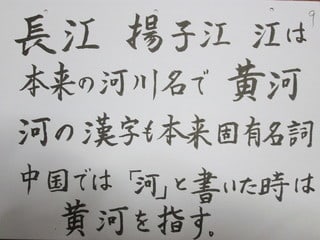 長江 揚子江 江は
本来の河川名で 黄河
河の漢字も本来固有名詞
中国では「河」と書いた時は
黄河を指す。
9